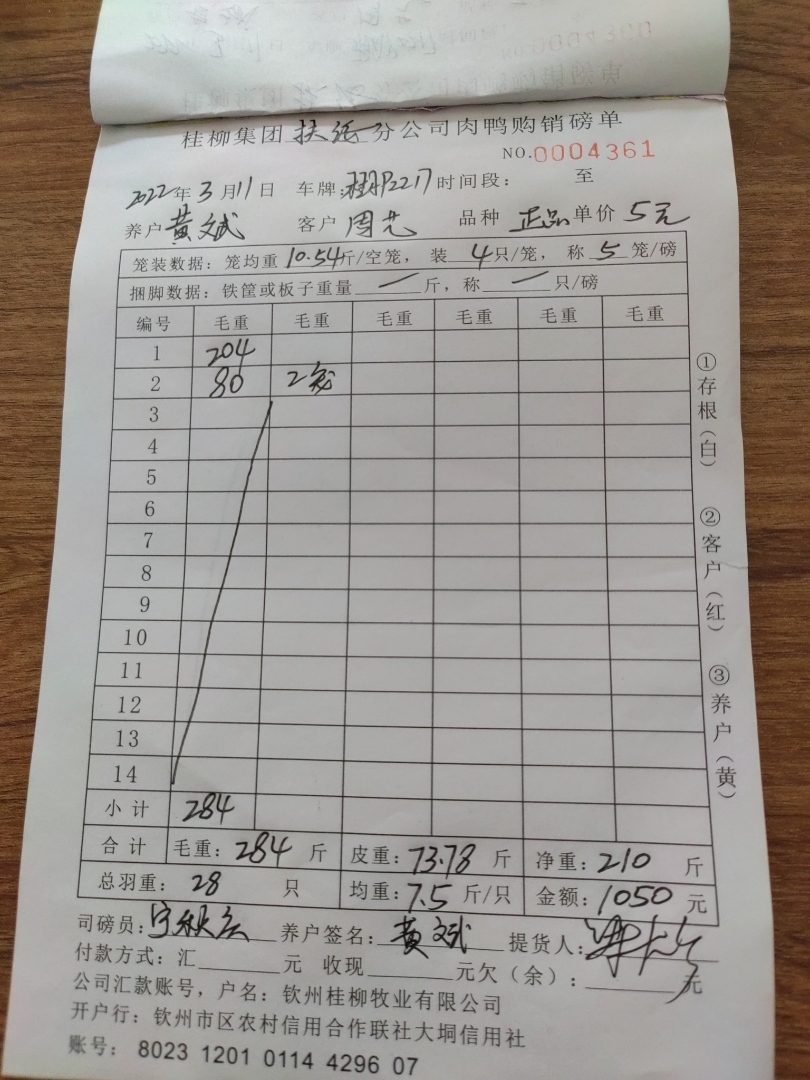 桂柳集团扶绥分公司肉鸭购销磅单
NO.0004361
2022年3月11日 车牌:2217 时间段: 至
养户 黄斌 客户 周艺 品种 正品 单价 5元
笼装数据: 笼均重 10.54斤/空笼, 装 4只/笼, 称 5 笼/磅
捆脚数据: 铁筐或板子重量 一 斤, 称 一 只/磅
编号 毛重 毛重 毛重 毛重 毛重 毛重
1 204
2 80 2笼
3
4
5
6
7
8
9
10
11
12
13
14
小计 284
合计 毛重: 284 斤 皮重: 73.78 斤 净重: 210 斤
总羽重: 28 只 均重: 7.5 斤/只 金额: 1050 元
司磅员: 养户签名: 黄斌 提货人:
付款方式: 汇 元 收现 元欠(余): 元
公司汇款账号, 户名: 钦州桂柳牧业有限公司
开户行: 钦州市区农村信用合作联社大垌信用社
账号: 8023 1201 0114 4296 07
①存根(白)
②客户(红)
③养户(黄)